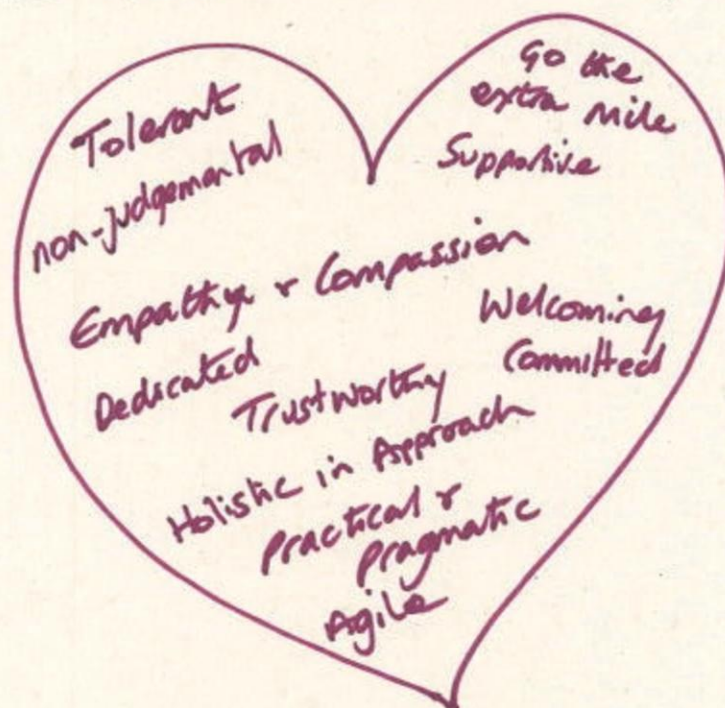 Tolerant
non-judgemental
Go the
extra mile
Supportive
Empathy & Compassion
Welcoming
Committed
Dedicated
Trustworthy
Holistic in Approach
Practical &
Pragmatic
Agile